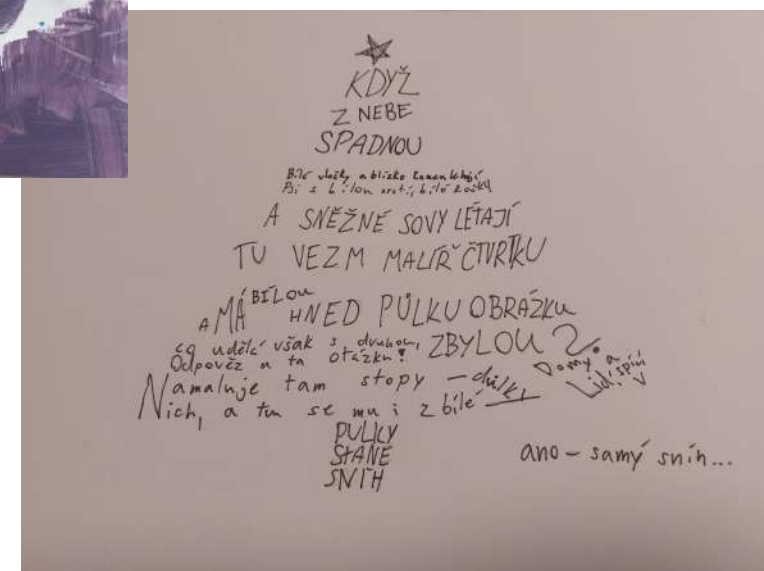 KDYŽ
Z NEBE
SPADNOU
Bílé vločky a blízko kamen leží
Psi s bílou srstí, bílé kočky
A SNĚŽNÉ SOVY LÉTAJÍ
TU VEZM MALÍŘ ČTVRTKU
A MÁ BÍLOU HNED PŮLKU OBRÁZKU
co udělá však s druhou, ZBYLOU?
Odpověz a ta otázku!
Namaluje tam stopy – důlky Domy a
Lidi spící v
Nich, a tu se mu i z bílé
PŮLKY
STANE
SNÍH
ano – samý sníh...